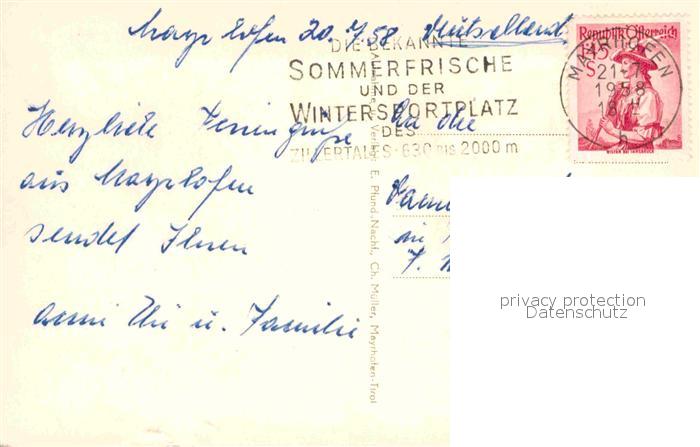 Mayrhofen 20.7.58 Deutschland
DIE BEKANNTE
SOMMERFRISCHE
UND DER
WINTERSPORTPLATZ
DES
ZILLERTALES · 630 BIS 2000 m
Republik Österreich
MAYRHOFEN
21-7
1958
18
b
Herzliche Feriengrüße
aus Mayrhofen
sendet Ihnen
u. Familie
An die
in
E. Pfund-Nachf., Ch. Müller, Mayrhofen-Tirol
privacy protection
Datenschutz